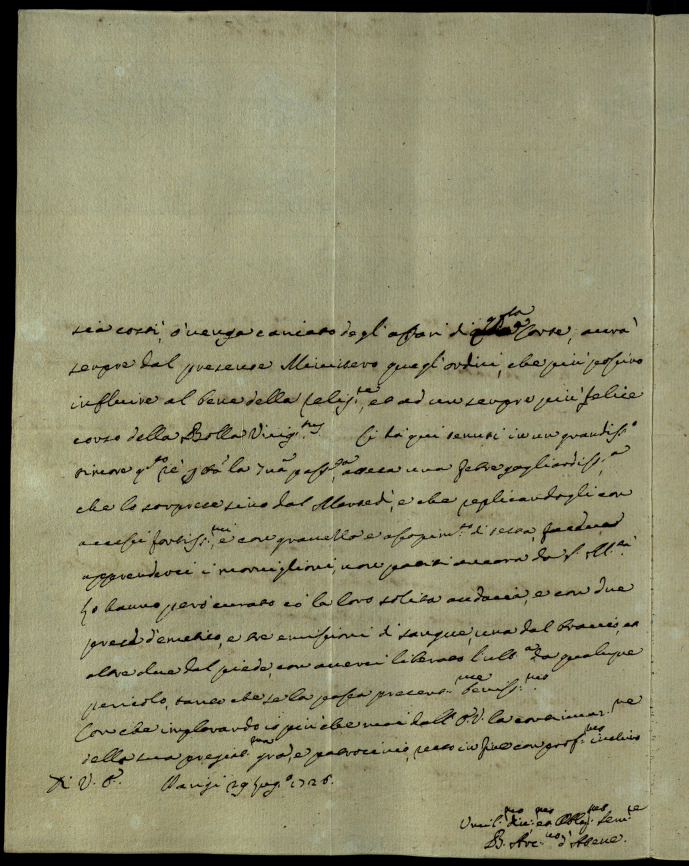 sia così, ò venga cariato degl'affari di q.sta Corte, avrà
sempre dal presente Ministero quegl'ordini, che più possino
influire al bene della relig.ne, et ad un sempre più felice
corso della Bolla Unig.tus Ci hà qui tenuti in un grandiss.o
timore q.to rè p tta la 7na pass.ta, attesa una febre gagliardiss.a
che lo sorprese sino dal Martedì, e che replicandogli con
accessi fortiss.mi, e con gravezza e asopim.to di testa facendo
apprenderci i morviglioni, non patiti ancora da S. M.tà
Lo hanno però curato cò la loro solita audacia, e con due
prese d'emetico, e tre emissioni di sangue, una dal braccio, et
altre due dal piede, con averci liberato l'alt.a da qualunque
pericolo, tanto che se la passa presentem.te beniss.mo
Con che implorando io più che mai dall'E.V. la continuaz.ne
della sua pregiat.ma grà, e patrocinio, resto in fine con prof.mo inchino
Di V. E. Parigi 29 Lug.o 1726.
Umil.mo div.mo et Oblig.mo Serv.re
B. Arc.vo d'Atene.